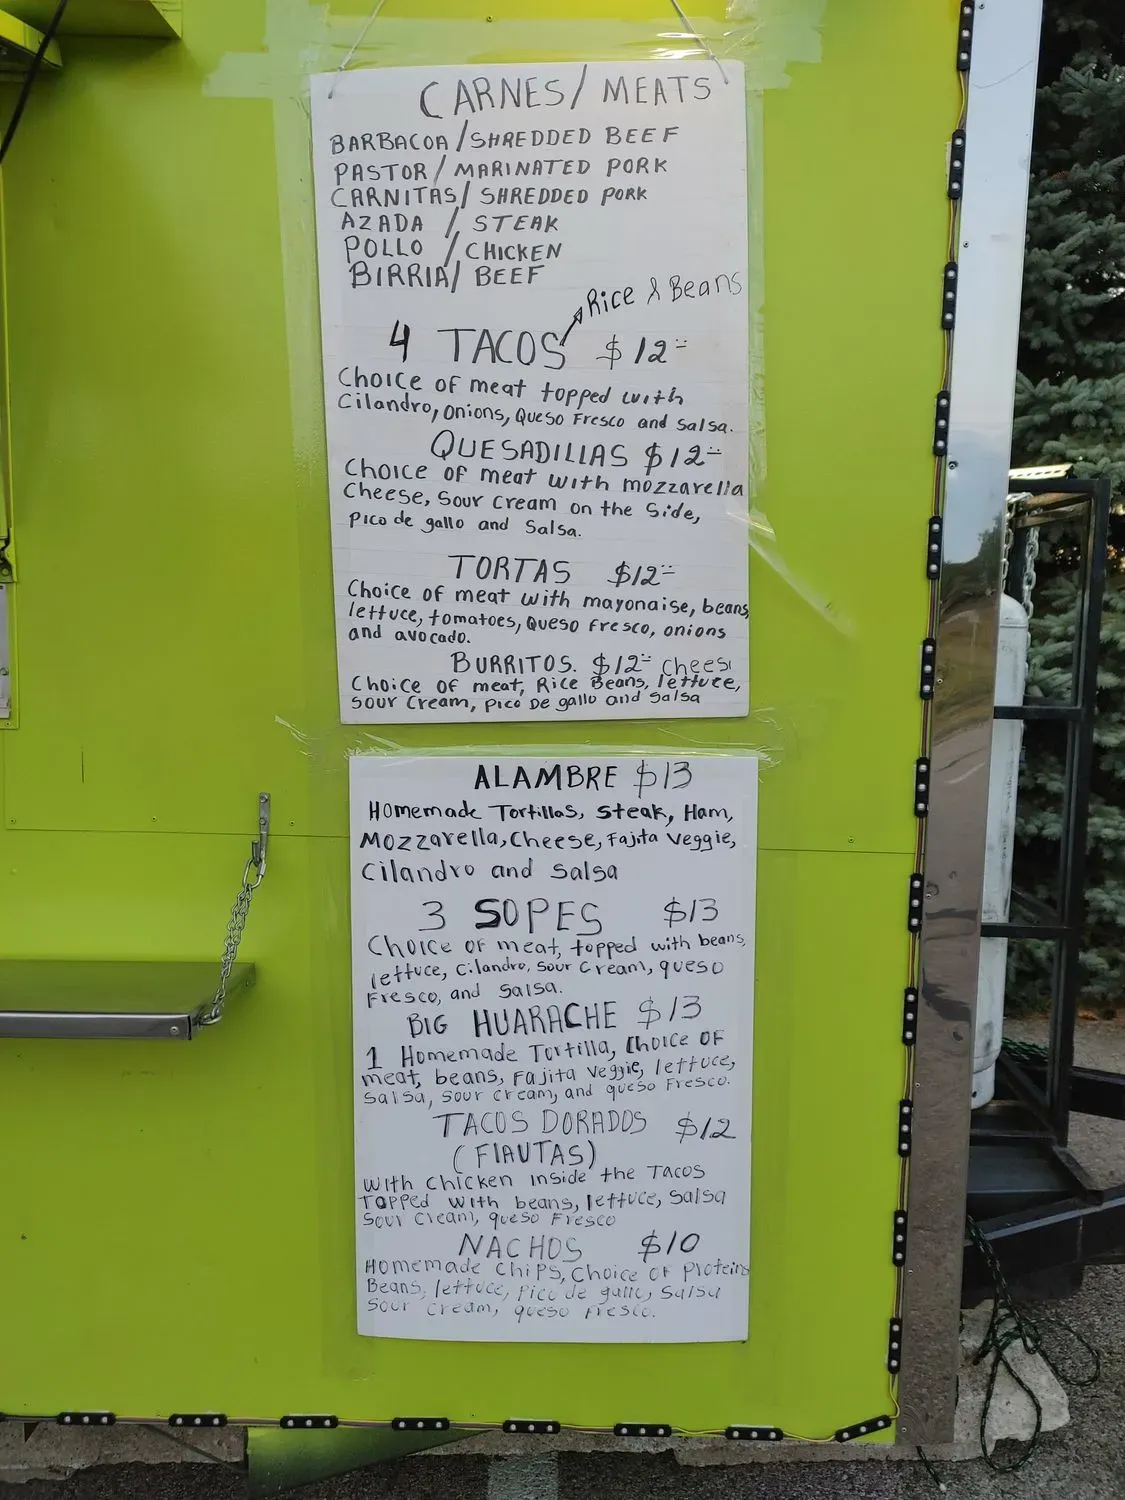 CARNES/MEATS
BARBACOA/SHREDDED BEEF
PASTOR/MARINATED PORK
CARNITAS/SHREDDED PORK
AZADA / STEAK
POLLO / CHICKEN
BIRRIA/ BEEF
Rice & Beans
4 TACOS $12=
Choice of meat topped with
Cilandro, onions, Queso Fresco and salsa.
QUESADILLAS $12=
Choice of meat with mozzarella
Cheese, Sour Cream on the Side,
Pico de gallo and Salsa.
TORTAS $12=
Choice of meat with mayonaise, beans,
lettuce, tomatoes, Queso Fresco, onions
and avocado.
BURRITOS. $12= Cheese
Choice of meat, Rice Beans, lettuce,
Sour Cream, Pico De gallo and Salsa
ALAMBRE $13
Homemade Tortillas, Steak, Ham,
Mozzarella, Cheese, Fajita Veggie,
Cilandro and Salsa
3 SOPES $13
Choice of meat, topped with beans,
lettuce, Cilandro, Sour Cream, queso
Fresco, and Salsa.
BIG HUARACHE $13
1 Homemade Tortilla, Choice OF
meat, beans, Fajita Veggie, lettuce,
Salsa, Sour Cream, and queso Fresco.
TACOS DORADOS $12
(FlAUTAS)
With Chicken Inside the TACOS
TOPPed With beans, lettuce, Salsa
Sour Cream, queso Fresco
NACHOS $10
Homemade ChiPS, Choice OF Proteins
Beans, lettuce, Pico de gallo, Salsa
Sour Cream, queso Fresco.